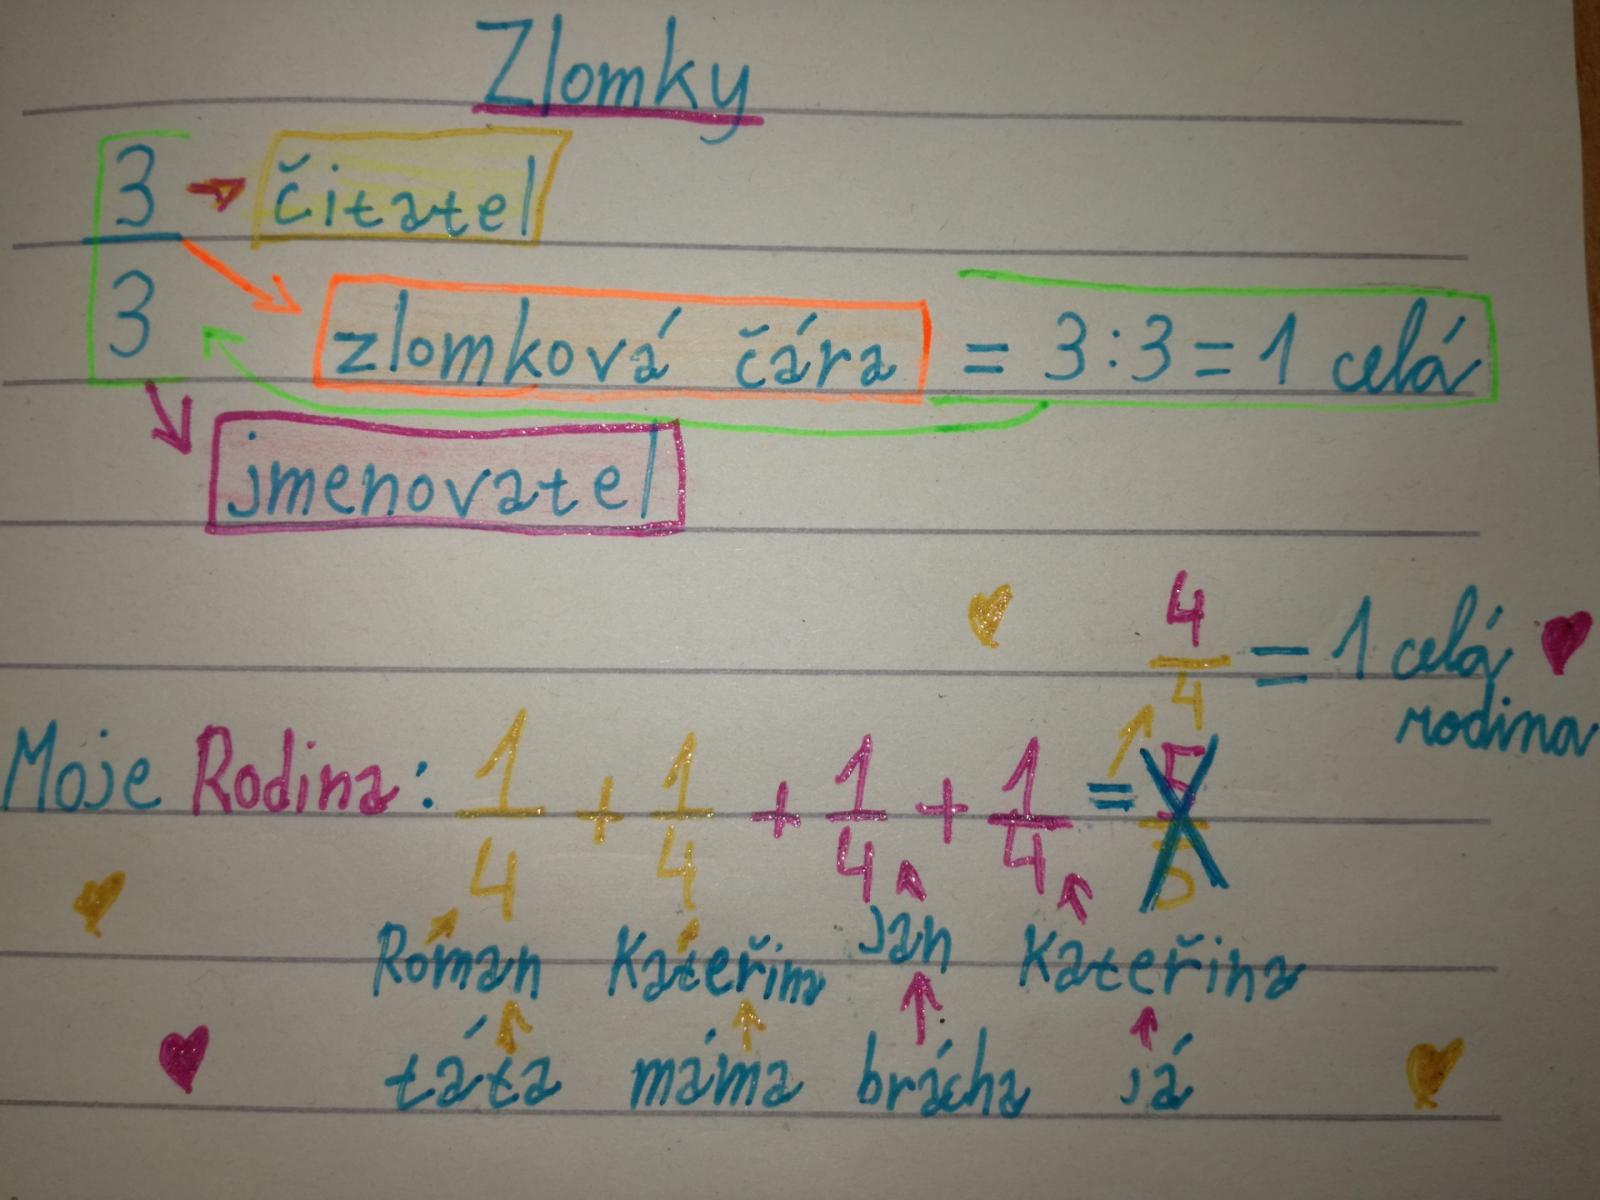 Zlomky
3 čitatel
3 zlomková čára = 3:3 = 1 celá
jmenovatel
4/4 = 1 celá
rodina
Moje Rodina: 1/4 + 1/4 + 1/4 + 1/4 =
Roman Kateřina Jan Kateřina
táta máma brácha já